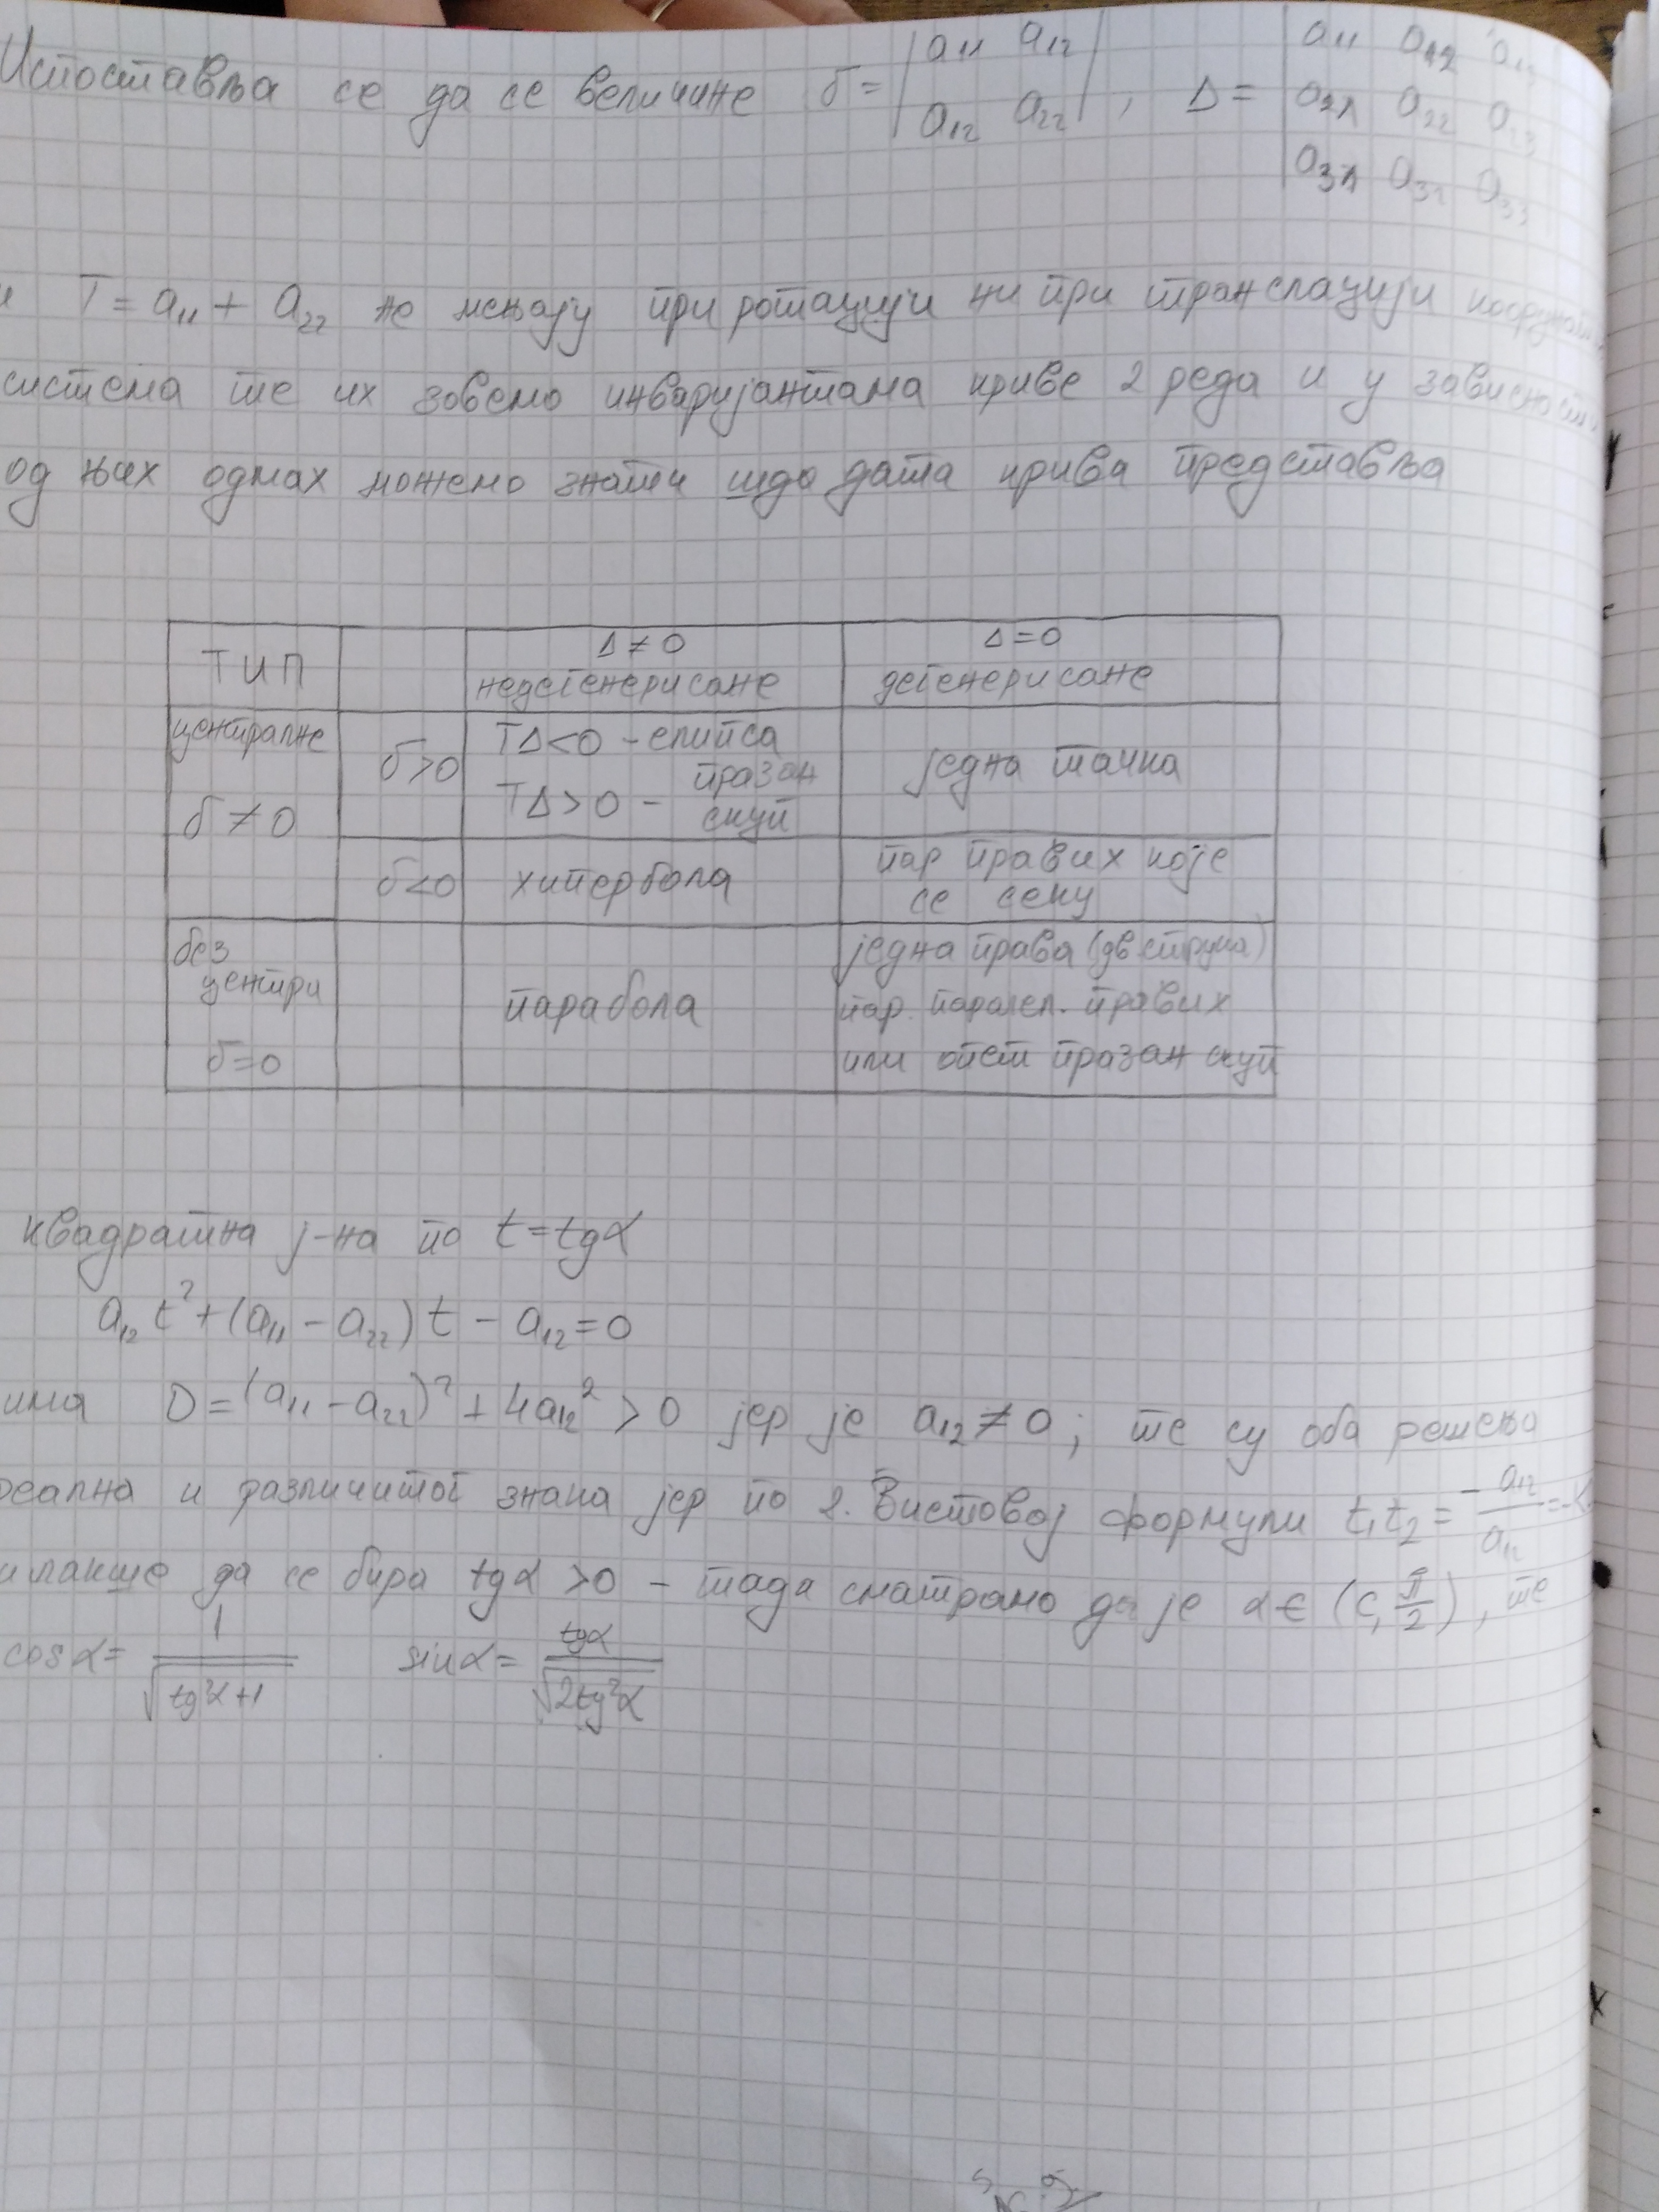 Испоставља се да се величине δ = | a₁₁ a₁₂ | , Δ = | a₁₁ a₁₂ a₁₃
| a₁₂ a₂₂ | a₂₁ a₂₂ a₂₃
a₃₁ a₃₂ a₃₃
и T = a₁₁ + a₂₂ не мењају при ротацији ни при транслацији
система те их зовемо инваријантама криве 2 реда и у зависности
од њих одмах можемо знати шда дата крива представља
ТИП Δ ≠ 0 Δ = 0
недегенерисане дегенерисане
централне δ > 0 TΔ < 0 - елипса једна тачка
δ ≠ 0 TΔ > 0 - празан скуп
δ < 0 хипербола пар правих које
се секу
без једна права (двструка)
центри парабола пар. паралел. правих
δ = 0 или опет празан скуп
квадратна ј-на по t = tgα
a₁₂ t² + (a₁₁ - a₂₂) t - a₁₂ = 0
има D = (a₁₁ - a₂₂)² + 4a₁₂² > 0 јер је a₁₂ ≠ 0 ; те су оба решења
реална и различитог знака јер по 2. Вистовој формули t₁t₂ = - a₁₂ / a₁₂ =
лакше да се бира tgα > 0 - тада сматрамо да је α ∈ (0, π/2) , те
cosα = 1 / √(tg²α + 1) sinα = tgα / √(2tg²α)